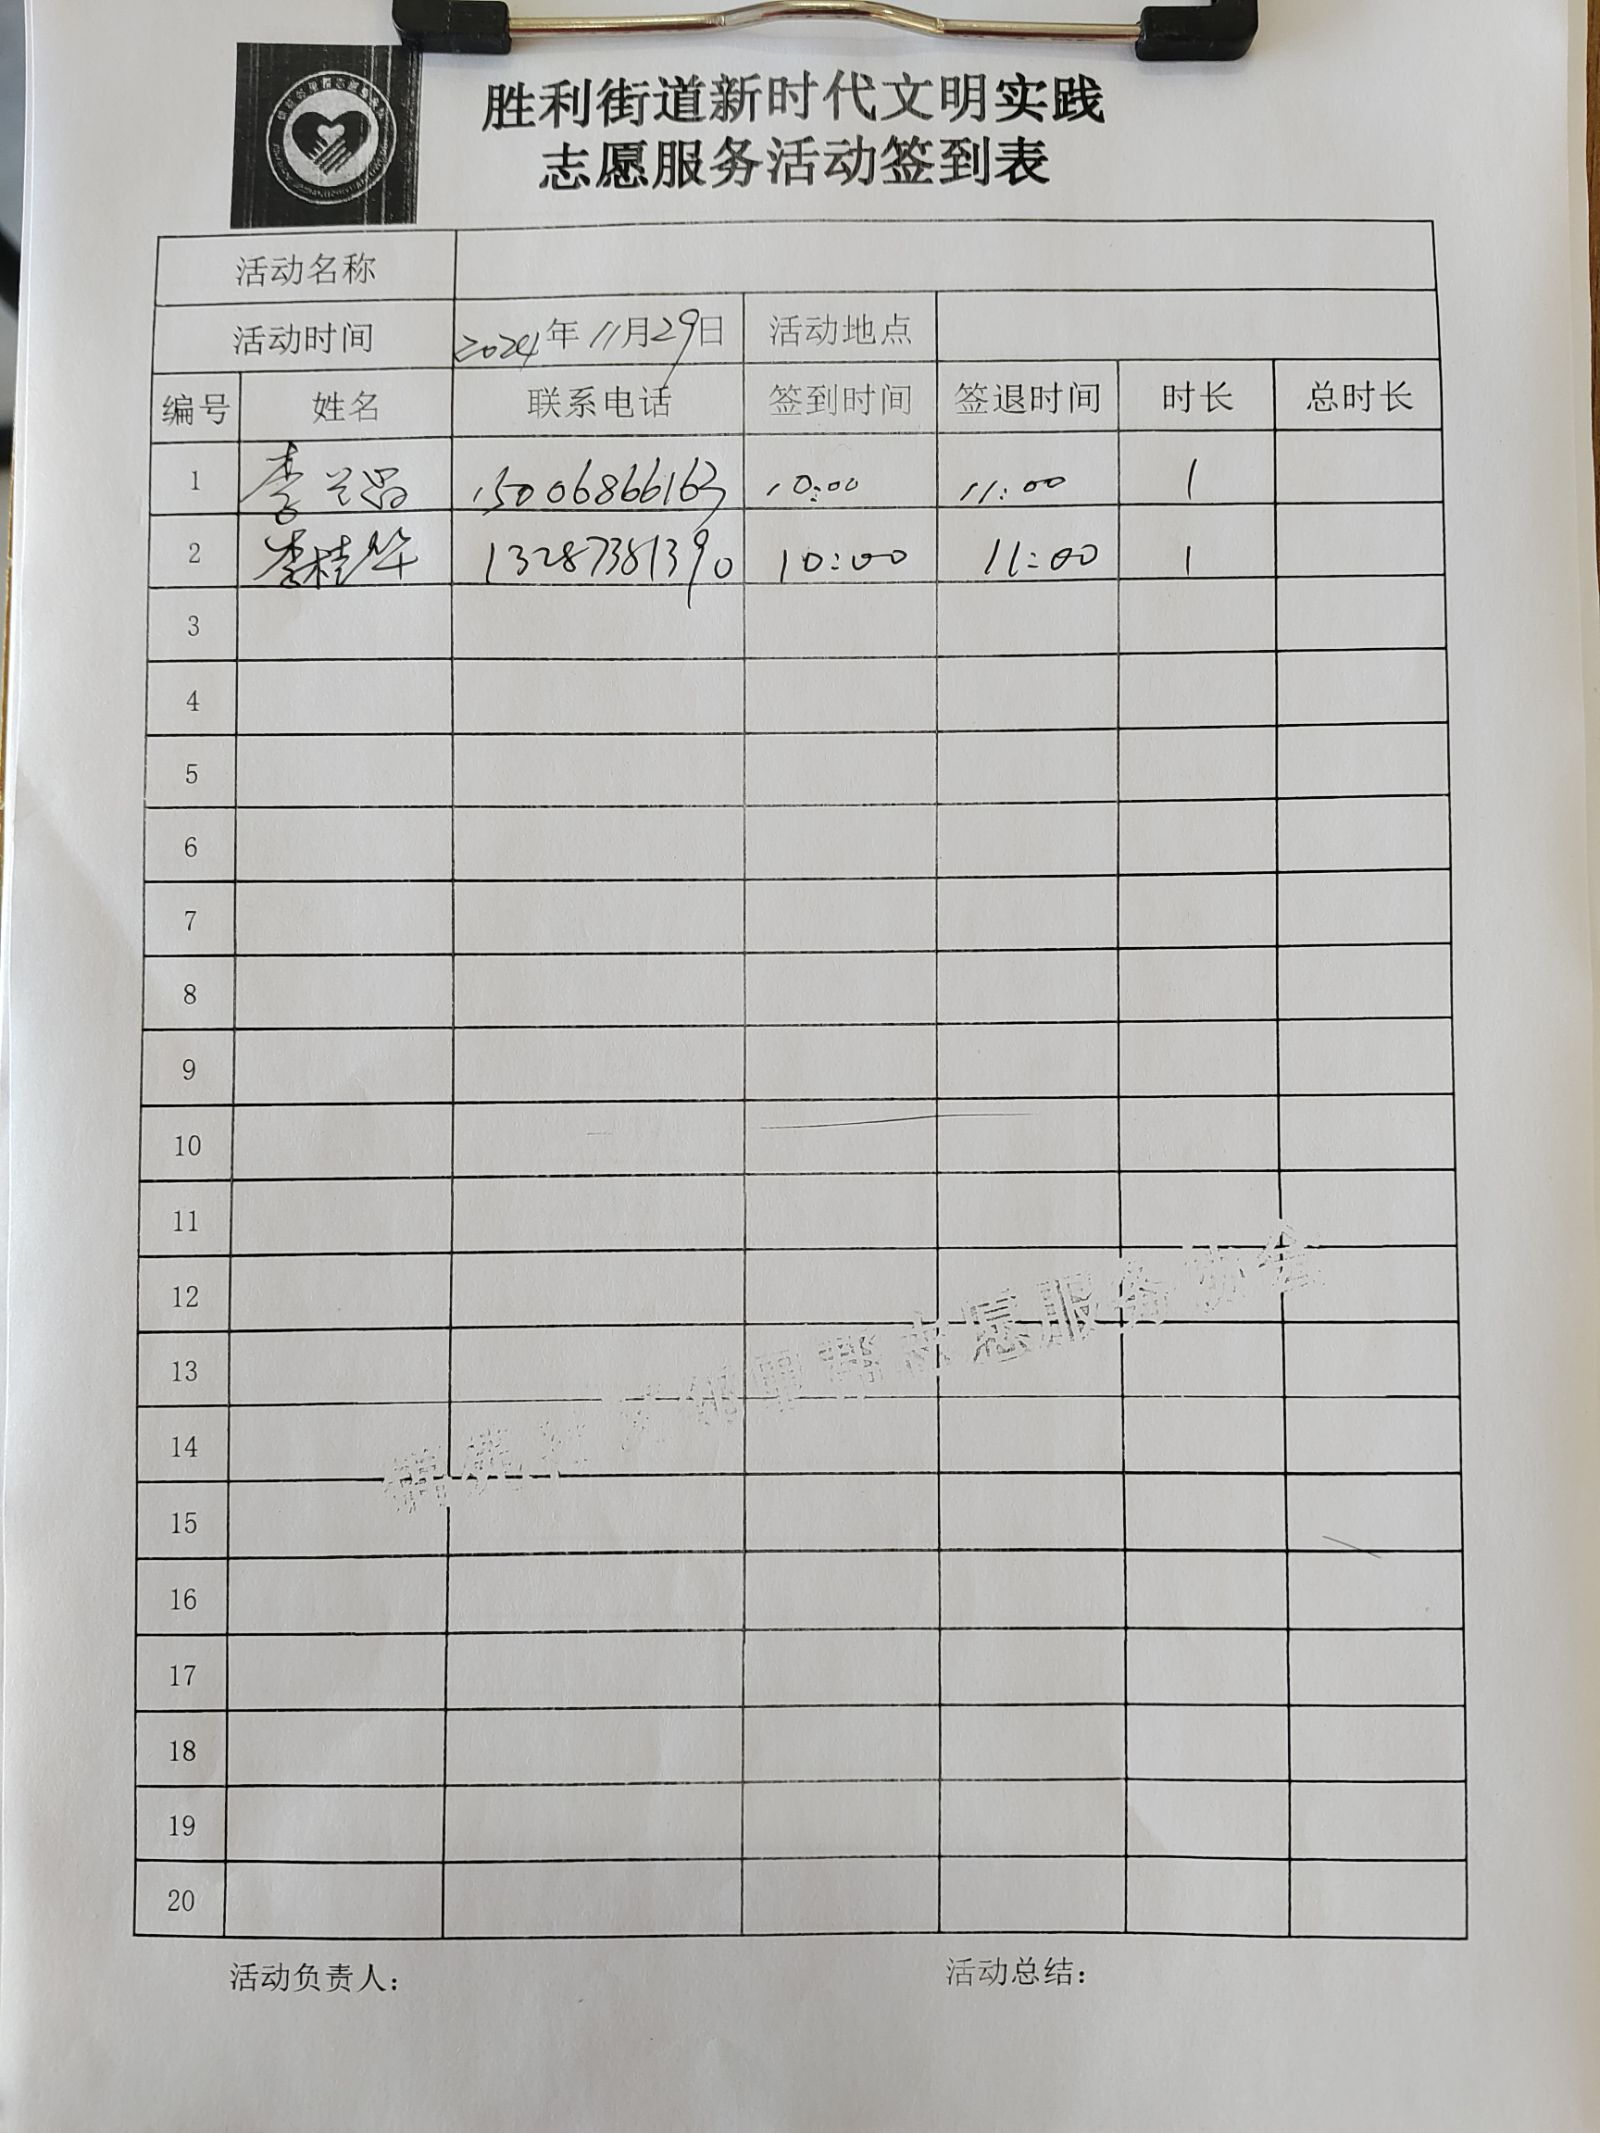 胜利街道新时代文明实践
志愿服务活动签到表
活动名称
活动时间 2024年11月29日 活动地点
编号 姓名 联系电话 签到时间 签退时间 时长 总时长
1 李兰 15006866163 10:00 11:00 1
2 李桂华 13287381390 10:00 11:00 1
3
4
5
6
7
8
9
10
11
12
13
14
15
16
17
18
19
20
邻里帮志愿服务协会
活动负责人： 活动总结：